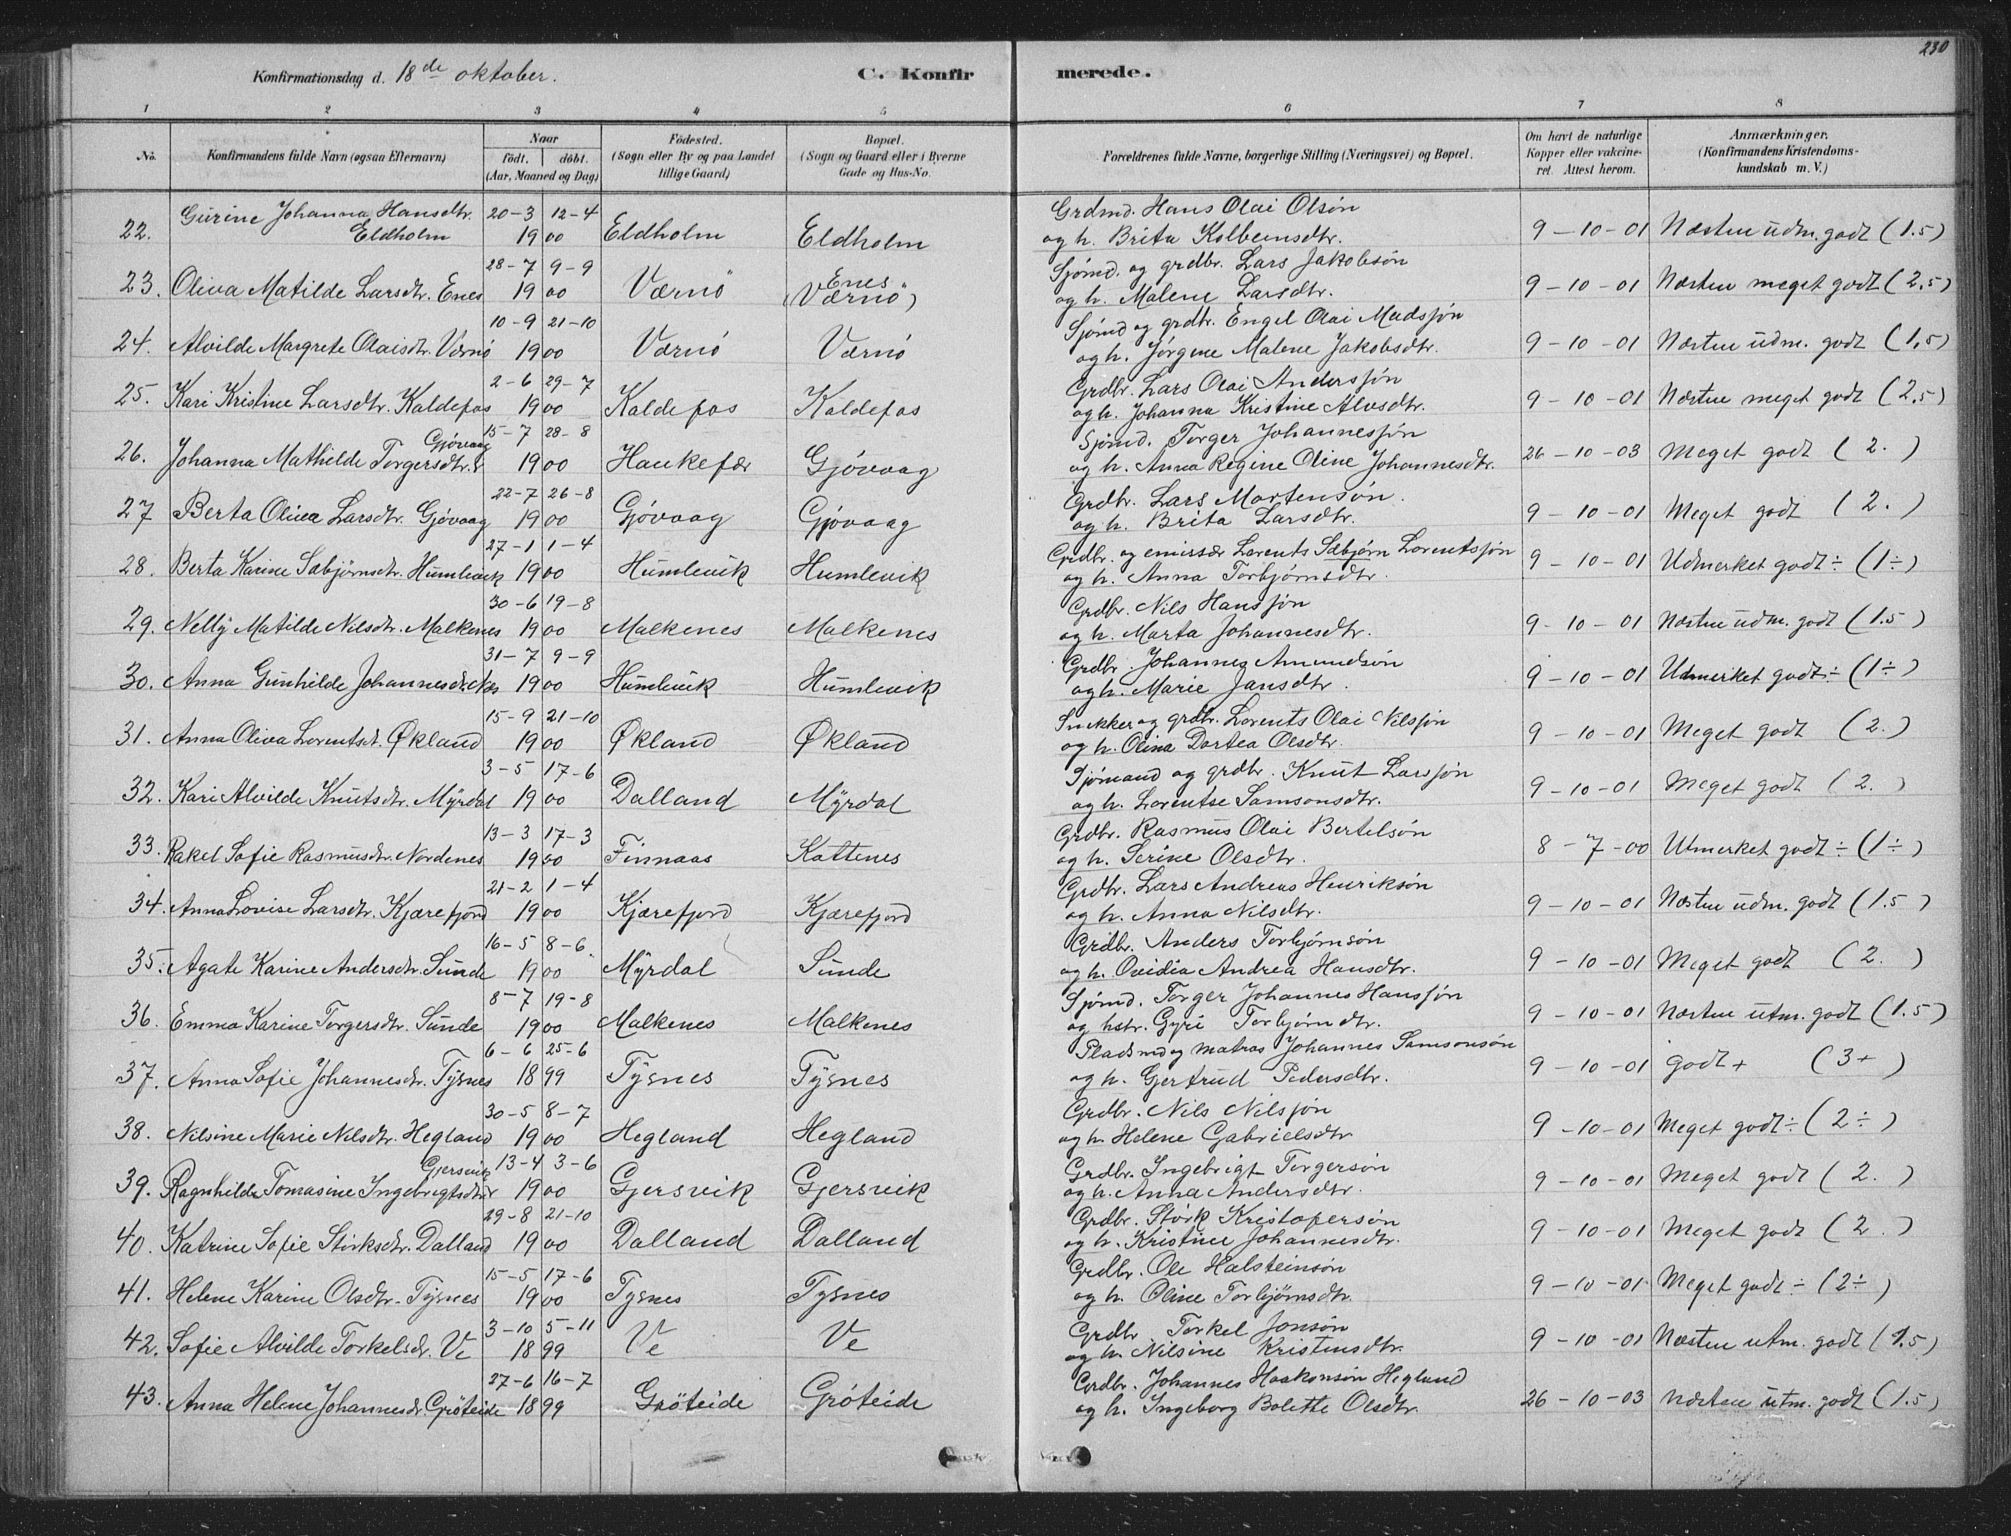 230
Konfirmationsdag d. 18de oktober. C. Konfirmerede.
1 2 3 4 5 6 7 8
No. Konfirmandens fulde Navn (ogsaa Efternavn) Naar født. døbt. (Aar, Maaned og Dag) Fødested. (Sogn eller By og paa Landet tillige Gaard) Bopæl. (Sogn og Gaard eller i Byerne Gade og Hus-No. Forældrenes fulde Navne, borgerlige Stilling (Næringsvei) og Bopæl. Om havt de naturlige Kopper eller vakcineret. Attest herom. Anmærkninger. (Konfirmandens Kristendomskundskab m. V.)
Gurine Johanna Hansdtr. 20-3 12-4 Grdmd. Hans Olai Olsøn
22. Eldholm 1900 Eldholm Eldholm og h. Brita Kolbeinsdtr. 9-10-01 Næsten udm. godt (1.5)
28-7 9-9 Enes Sjømd. og grdbr. Lars Jakobsøn
23. Oliva Matilde Larsdtr. Enes 1900 Værnø (Værnø) og h. Malene Larsdtr. 9-10-01 Næsten meget godt (2,5)
10-9 21-10 Sjømd og grdbr. Engel Olai Madsjøn
24. Alvilde Margrete Olaisdtr. Værnø 1900 Værnø Værnø og h. Jørgine Malene Jakobsdtr. 9-10-01 Næsten udm. godt (1,5)
2-6 29-7 Grdbr. Lars Olai Andersjøn
25. Kari Kristine Larsdtr. Kaldefos 1900 Kaldefos Kaldefos og h. Johanna Kristine Alvsdtr. 9-10-01 Næsten meget godt (2,5)
Gjøvaag 15-7 28-8 Sjømd. Torger Johannesjøn
26. Johanna Mathilde Torgersdtr. 1900 Haukefær Gjøvaag og h. Anna Regine Oline Johannesdtr. 26-10-03 Meget godt (2.)
22-7 26-8 Grdbr. Lars Mortensøn.
27 Berta Olina Larsdtr. Gjøvaag 1900 Gjøvaag Gjøvaag og h. Brita Larsdtr. 9-10-01 Meget godt (2.)
27-1 1-4 Grdbr. og emissær Lorents Sæbjørn Lorentsjøn
28. Berta Karine Sæbjørnsdtr. Humlevik 1900 Humlevik Humlevik og h. Anna Torbjørnsdtr. 9-10-01 Udmerket godt ÷ (1÷)
30-6 19-8 Grdbr. Nils Hansjøn
29. Nelly Matilde Nilsdtr. Malkenes 1900 Malkenes Malkenes og h. Marta Johannesdtr. 9-10-01 Næsten udm. godt (1.5)
31-7 9-9 Grdbr. Johannes Amundsøn
30. Anna Gunhilde Johannesdtr. Næs 1900 Humlevik Humlevik og h. Marie Jansdtr. 9-10-01 Udmerket godt ÷ (1÷)
15-9 21-10 Snekker og grdbr. Lorents Olai Nilsjøn
31. Anna Oliva Lorentsdt. Økland 1900 Økland Økland og h. Olina Dortea Olsdtr. 9-10-01 Meget godt (2.)
3-5 17-6 Sjømand og grdbr. Knut Larsjøn
32. Kari Alvilde Knutsdtr. Myrdal 1900 Dalland Myrdal og h. Lorentse Samsonsdtr. 9-10-01 Meget godt (2.)
13-3 17-3 Grdbr. Rasmus Olai Bertelsøn
33. Rakel Sofie Rasmusdtr. Nordenes 1900 Finnaas Kattenes og h. Serine Olsdtr. 8-7-00 Utmerket godt ÷ (1÷)
21-2 1-4 Grdbr. Lars Andreas Henriksøn
34. Anna Lovise Larsdtr. Kjærefjord 1900 Kjærefjord Kjærefjord og h. Anna Nilsdtr. 9-10-01 Næsten udm. godt (1.5)
16-5 8-6 Grdbr. Anders Torbjørnsøn
35. Agate Karine Andersdtr. Sunde 1900 Myrdal Sunde og h. Ovidia Andrea Hansdtr. 9-10-01 Meget godt (2.)
8-7 19-8 Sjømd. Torger Johannes Hansjøn
36. Emma Karine Torgersdtr. Sunde 1900 Malkenes Malkenes og hstr. Gyri Torbjørndtr. 9-10-01 Næsten utm. godt (1.5)
6-6 25-6 Pladsmd og matros Johannes Samsonsøn
37. Anna Sofie Johannesdtr. Tysnes 1899 Tysnes Tysnes og h. Gjertrud Pedersdtr. 9-10-01 godt + (3+)
30-5 8-7 Grdbr. Nils Nilsjøn
38. Nilsine Marie Nilsdtr. Hegland 1900 Hegland Hegland og h Helene Gabrielsdtr 9-10-01 Meget godt ÷ (2÷)
Gjersvik 13-4 3-6 Grdbr. Ingebrigt Torgersøn
39. Ragnhilde Tomasine Ingebrigtsdtr 1900 Gjersvik Gjersvik og h. Anna Andersdtr. 9-10-01 Meget godt (2.)
29-8 21-10 Grdbr. Størk Kristofersøn
40. Katrine Sofie Størksdtr. Dalland 1900 Dalland Dalland og h. Kristine Johannesdtr. 9-10-01 Meget godt (2.)
15-5 17-6 Grdbr. Ole Halsteinsøn
41. Helene Karine Olsdtr. Tysnes 1900 Tysnes Tysnes og h. Oline Torbjørnsdtr. 9-10-01 Meget godt ÷ (2÷)
3-10 5-11 Grdbr Torkel Jonsøn
42. Sofie Alvilde Torkelsdr. Ve 1899 Ve Ve og h. Nilsine Kristensdtr. 9-10-01 Næsten utm. godt (1.5)
27-6 16-7 Grdbr. Johannes Haakonsøn Hegland
43. Anna Helene Johannesdr. Grøteide 1899 Grøteide Grøteide og h. Ingeborg Bolette Olsdtr. 26-10-03 Næsten utm. godt (1.5)